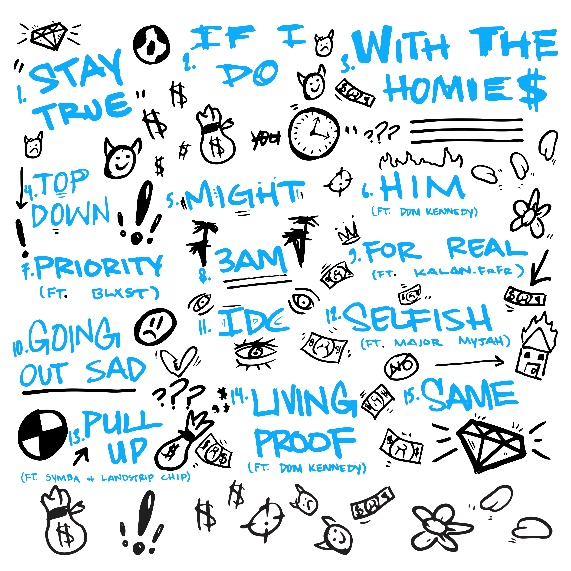 1. "STAY
TRUE"
2. IF I
DO
3. WITH THE
HOMIE$
$
$
$
$
$
YOU
"???
4. TOP
DOWN
!!
5. MIGHT
6. HIM
(FT. DOM KENNEDY)
!
7. PRIORITY
(FT. BLXST)
8. 3AM
9. FOR REAL
(FT. KALAN.FRFR)
10. GOING
OUT SAD
11. IDC
12. SELFISH
(FT. MAJOR MYJAH)
???
13. PULL
UP
(FT. SYMBA + LANDSTRIP CHIP)
$
14. LIVING
PROOF
(FT. DOM KENNEDY)
15. SAME
$
!!
$
$